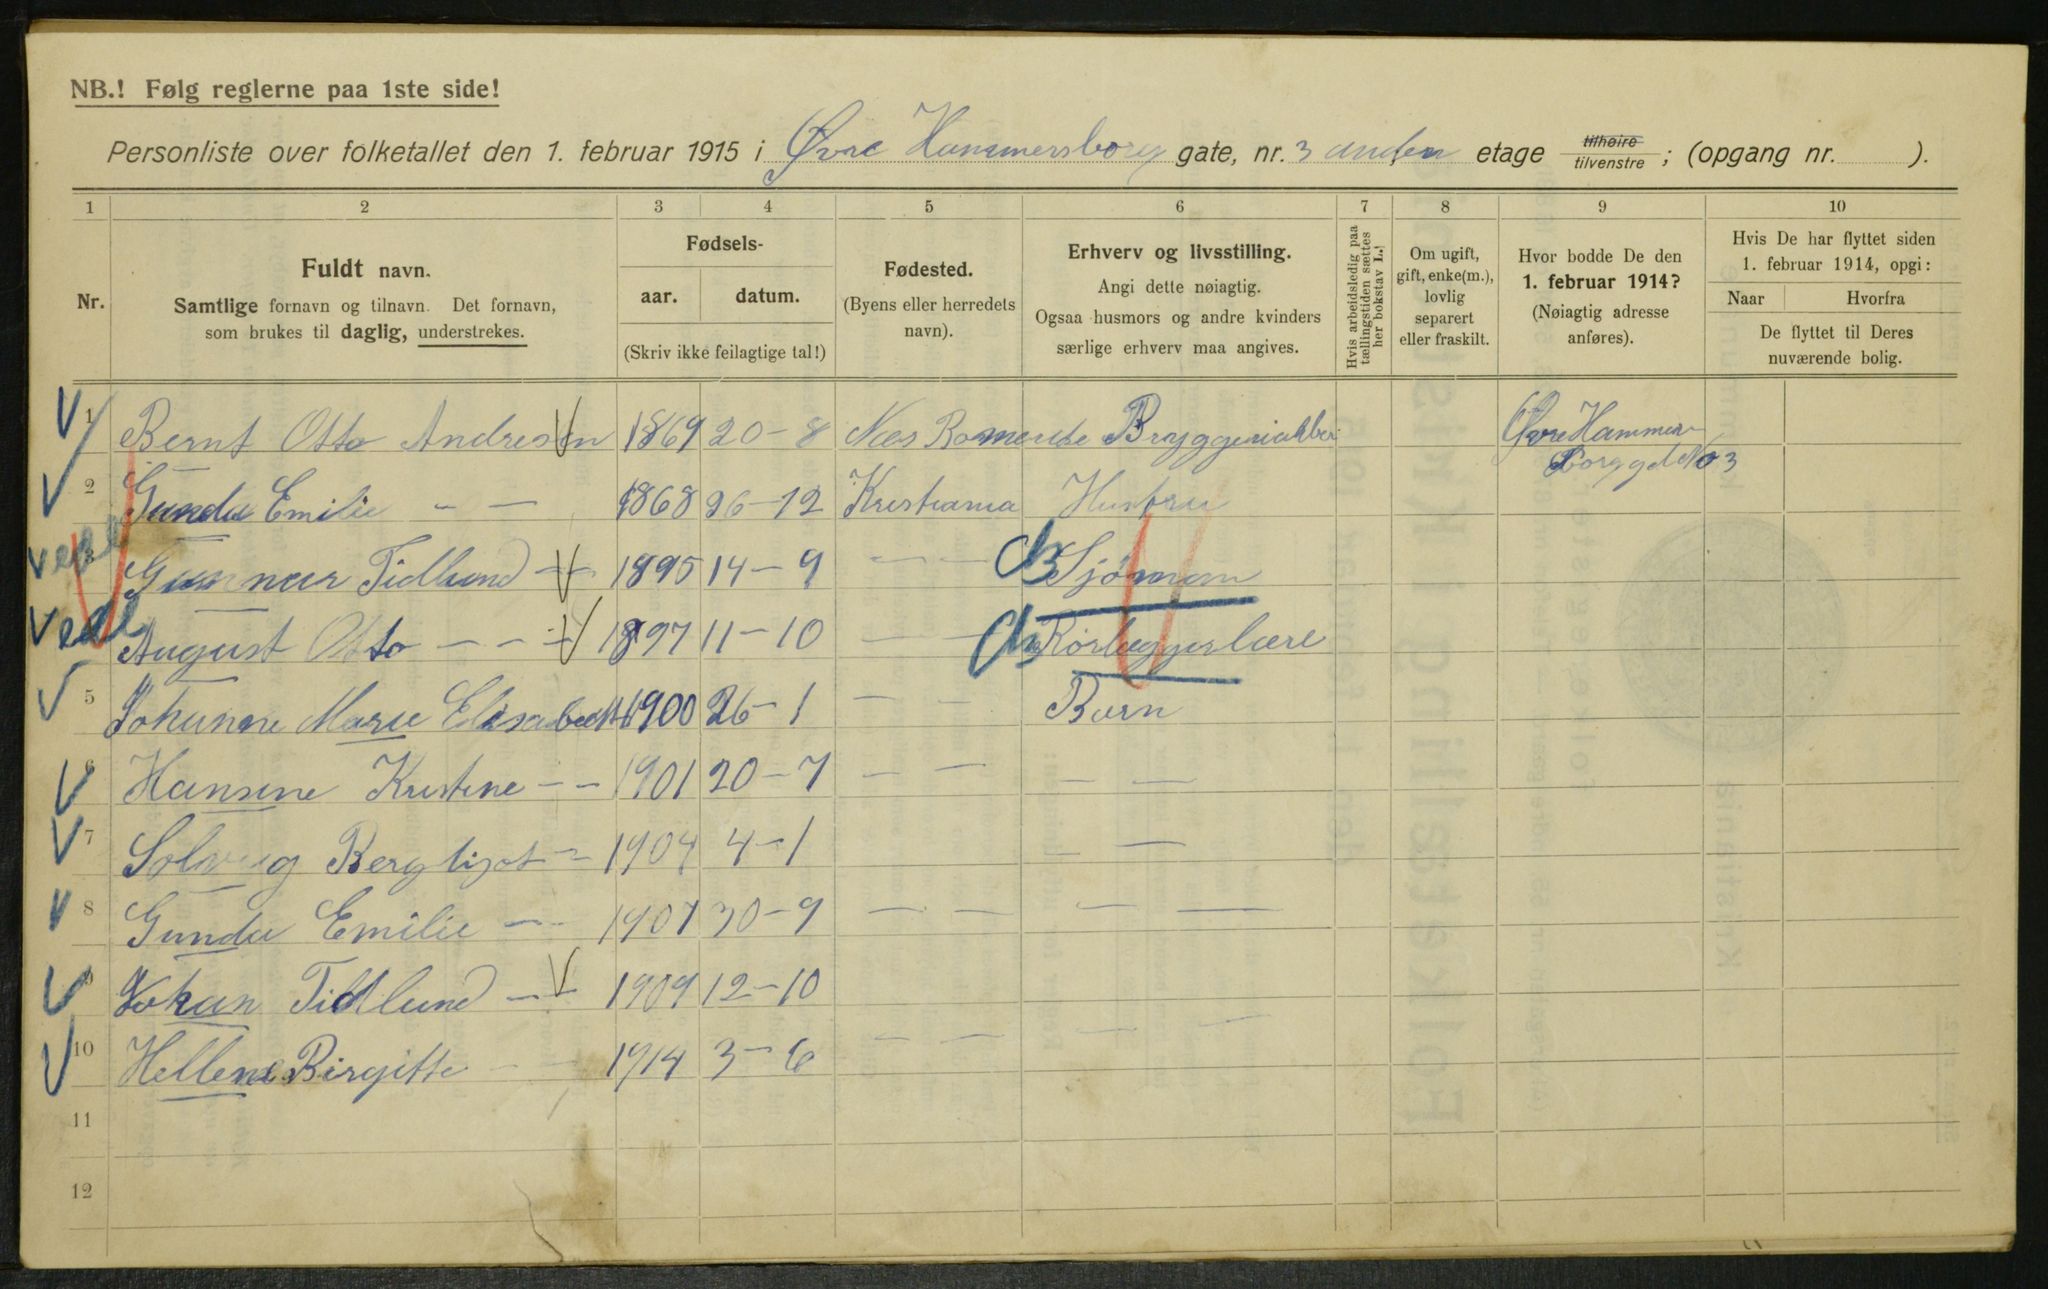 NB.! Følg reglerne paa 1ste side!
Personliste over folketallet den 1. februar 1915 i Øvre Hammersborg gate, nr. 3 anden etage tilhøire tilvenstre ; (opgang nr. ).
1 2 3 4 5 6 7 8 9 10
Nr.
Fuldt navn.
Samtlige fornavn og tilnavn. Det fornavn,
som brukes til daglig, understrekes.
Fødsels-
aar. datum.
(Skriv ikke feilagtige tal!)
Fødested.
(Byens eller herredets
navn).
Erhverv og livsstilling.
Angi dette nøiagtig.
Ogsaa husmors og andre kvinders
særlige erhverv maa angives.
Hvis arbeidsledig paa
tællingstiden sættes
her bokstav L.
Om ugift,
gift, enke(m.),
lovlig
separert
eller fraskilt.
Hvor bodde De den
1. februar 1914?
(Nøiagtig adresse
anføres).
Hvis De har flyttet siden
1. februar 1914, opgi:
Naar Hvorfra
De flyttet til Deres
nuværende bolig.
1 Bernt Otto Andresen 1869 20-8 Nes Romerike Øvre Hammers
borggd No 3
2 Gunda Emilie - - 1868 26-12 Kristiania Hustru
3 Gunnar Tidlund - 1895 14-9 - - Sjöman
4 August Otto - - - 1897 11-10 - - Rörlæggerlære
5 Johanne Marie Elisabeth 1900 26-1 - - Barn
6 Hansine Kristine - - 1901 20-7 - - - -
7 Solveig Bergliot - - 1904 4-1 - -
8 Gunda Emilie - - 1907 30-9 - - - -
9 Johan Tidlund - - 1909 12-10
10 Hellene Birgitte - - 1914 3-6 - - - -
11
12